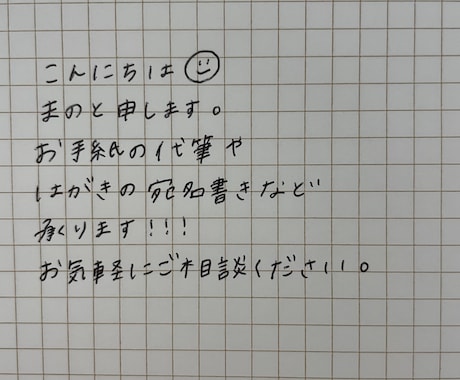 こんにちは☺
まのと申します。
お手紙の代筆や
はがきの宛名書きなど
承ります!!!
お気軽にご相談ください。